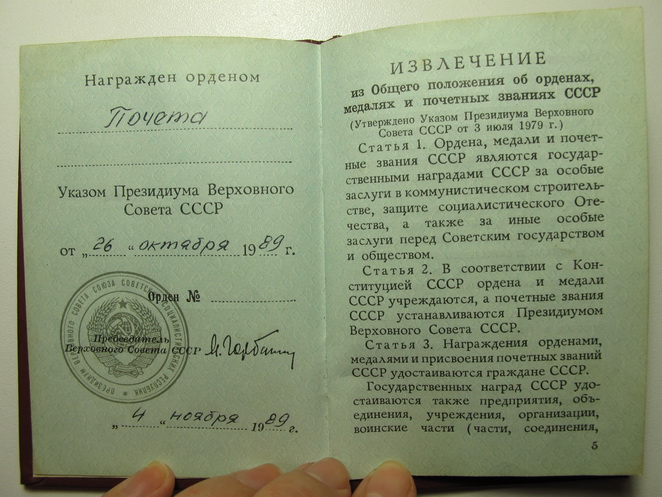 Награжден орденом
Почета
Указом Президиума Верховного
Совета СССР
от „26“ октября 1989 г.
Орден №
Председатель
Верховного Совета СССР М. Горбачев
„4“ ноября 1989 г.
ИЗВЛЕЧЕНИЕ
из Общего положения об орденах,
медалях и почетных званиях СССР
(Утверждено Указом Президиума Верховного
Совета СССР от 3 июля 1979 г.)
Статья 1. Ордена, медали и почет-
ные звания СССР являются государ-
ственными наградами СССР за особые
заслуги в коммунистическом строитель-
стве, защите социалистического Оте-
чества, а также за иные особые
заслуги перед Советским государством
и обществом.
Статья 2. В соответствии с Кон-
ституцией СССР ордена и медали
СССР учреждаются, а почетные звания
СССР устанавливаются Президиумом
Верховного Совета СССР.
Статья 3. Награждения орденами,
медалями и присвоения почетных званий
СССР удостаиваются граждане СССР.
Государственных наград СССР удо-
стаиваются также предприятия, объ-
единения, учреждения, организации,
воинские части (части, соединения,
5